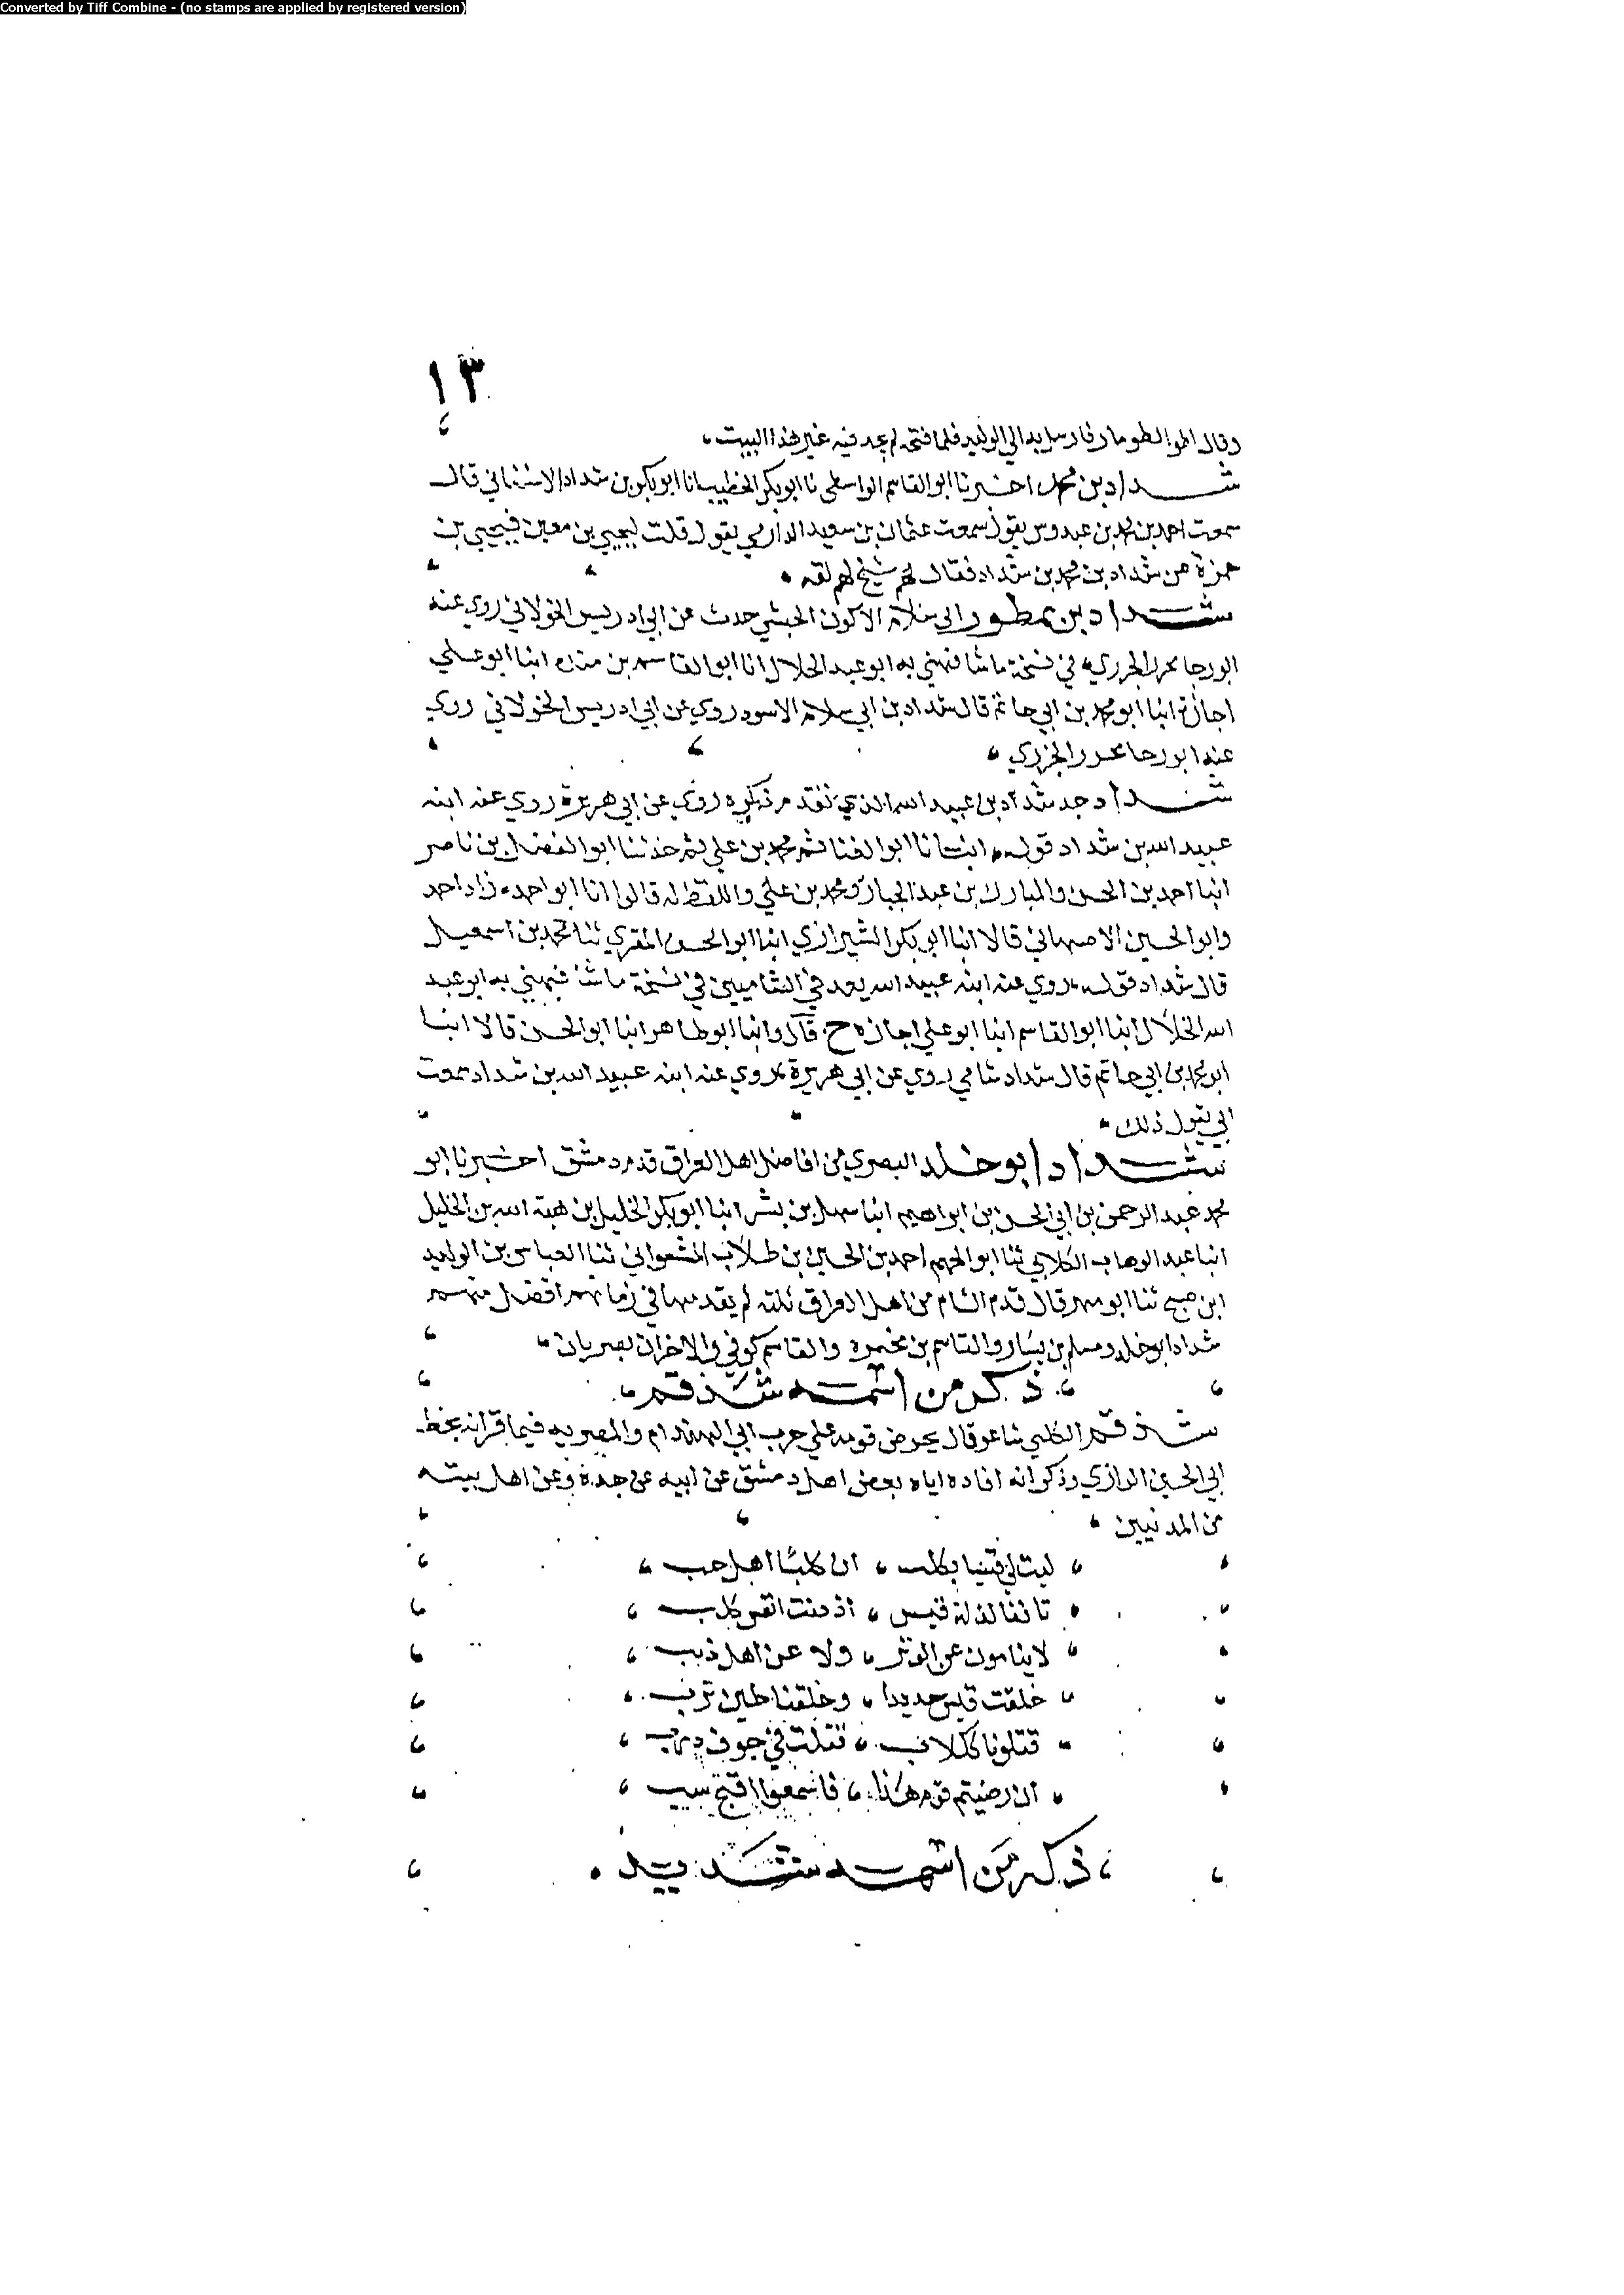 Converted by Tiff Combine - (no stamps are applied by registered version)
١٣
وقال اطوا الطومار فارسل به الى الوليد فلما فتحه لم يجد فيه غير هذا البيت
شداد بن محمد اخبرنا ابو القاسم الواسطي نا ابو بكر الخطيب انا ابو بكر بن شداد الاشناني قال
سمعت احمد بن محمد بن عبدوس يقول سمعت عثمان بن سعيد الدارمي يقول قلت ليحيي بن معين فيحيي بن
حمزة عن شداد بن محمد بن شداد فقال هم شيخ لهم ثقه
شداد بن ممطور ابي سلام الاكون الحبشي حدث عن ابي ادريس الخولاني روي عنه
ابو رجا محرز الجزري في نسخة ما شافهني به ابو عبد الخلال انا ابو القاسم بن منده انبا ابو علي
اجازة انبا ابو محمد بن ابي حاتم قال شداد بن ابي سلام الاسود روي عن ابي ادريس الخولاني روي
عنه ابو رجا محرز الجزري
شداد جد شداد بن عبيد الله الذي تقدم ذكره روي عن ابي هريرة روي عنه ابنه
عبيد الله بن شداد قوله انبانا ابو الغنائم محمد بن علي ثم حدثنا ابو الفضل بن ناصر
انبا احمد بن الحسن والمبارك بن عبد الجبار ومحمد بن علي واللفظ له قالوا انا ابو احمد زاد احمد
وابو الحسين الاصبهاني قالا انبا ابو بكر الشيرازي انبا ابو الحسن المقري ثنا محمد بن اسمعيل
قال شداد قوله روي عنه ابنه عبيد الله يعد في الشاميين في نسخة ما شافهني به ابو عبد
الله الخلال انبا ابو القاسم انبا ابو علي اجازه ح قال وانبا ابو طاهر انبا ابو الحسن قالا انبا
ابو محمد بن ابي حاتم قال شداد شامي روي عن ابي هريرة روي عنه ابنه عبيد الله بن شداد سمعت
ابي يقول ذلك
شداد ابو خلد البصري من افاضل اهل العراق قدم دمشق اخبرنا ابو
محمد عبد الرحمن بن ابي الحسن بن ابراهيم انبا سهل بن بشر انبا ابو بكر الخليل بن هبة الله بن الخليل
انبا عبد الوهاب الكلابي ثنا ابو الجهم احمد بن الحسين بن طلاب المشغراني ثنا العباس بن الوليد
ابن صبح ثنا ابو مسهر قال قدم الشام من اهل العراق ثلثه لم يقدمها في زمانهم افضل منهم
شداد ابو خلد ومسلم بن يسار والقاسم بن مخيمره والقاسم كوفي والاخران بصريان
ذكر من اسمه شذقم
شذقم الكلبي شاعر قال يحرض قومه علي حرب ابي الهيذام والمضريه فيما قرانه بخط
ابي الحسين الرازي وذكر انه افاده اياه بعض اهل دمشق عن ابيه عن جده وعن اهل بيته
من المدنيين
ليت لي قينا بكلب ان كلبا اهل حب
تانفا لذلة قيس اذ انت كلب
لا ينامون عن الوتر ولا عن اهل ذنب
خلقت قيس حديدا وخلقنا طين ترب
قتلونا ككلاب قتلت في جوف درب
ان رضيتم قوم هكذا فاسمعوا اقبح سب
ذكر من اسمه شديد